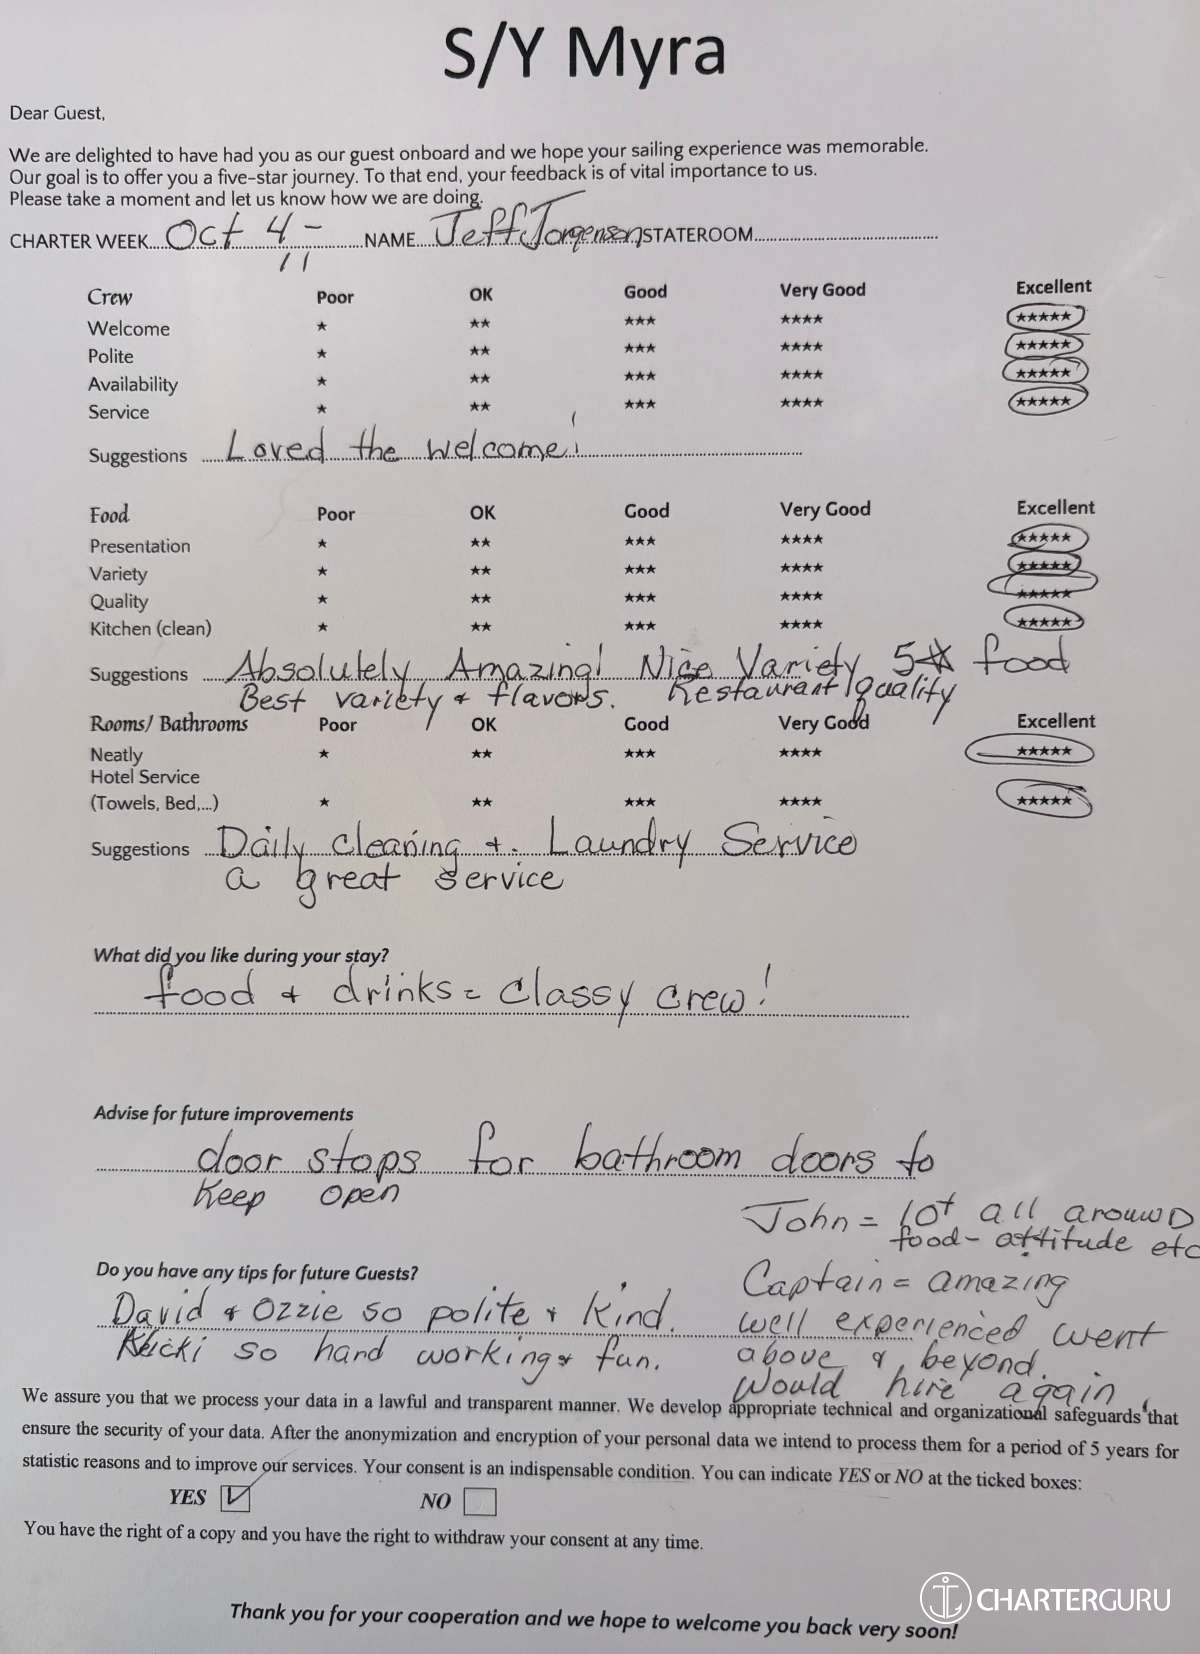 S/Y Myra
Dear Guest,
We are delighted to have had you as our guest onboard and we hope your sailing experience was memorable.
Our goal is to offer you a five-star journey. To that end, your feedback is of vital importance to us.
Please take a moment and let us know how we are doing.
CHARTER WEEK....Oct 4 - 11....NAME....Jeff Jorgensen STATEROOM....
Crew Poor OK Good Very Good Excellent
Welcome ★ ★★ ★★★ ★★★★ ★★★★★
Polite ★ ★★ ★★★ ★★★★ ★★★★★
Availability ★ ★★ ★★★ ★★★★ ★★★★★
Service ★ ★★ ★★★ ★★★★ ★★★★★
Suggestions Loved the welcome!
Food Poor OK Good Very Good Excellent
Presentation ★ ★★ ★★★ ★★★★ ★★★★★
Variety ★ ★★ ★★★ ★★★★ ★★★★★
Quality ★ ★★ ★★★ ★★★★ ★★★★★
Kitchen (clean) ★ ★★ ★★★ ★★★★ ★★★★★
Suggestions Absolutely Amazing! Nice Variety 5★ food
Best variety & flavors. Restaurant quality
Rooms/ Bathrooms Poor OK Good Very Good Excellent
Neatly ★ ★★ ★★★ ★★★★ ★★★★★
Hotel Service
(Towels, Bed,...) ★ ★★ ★★★ ★★★★ ★★★★★
Suggestions Daily cleaning & Laundry Service
a great service
What did you like during your stay?
food & drinks = classy crew!
Advise for future improvements
door stops for bathroom doors to
keep open
John = 10+ all around
food - attitude etc
Do you have any tips for future Guests?
David & Ozzie so polite & kind.
so hard working & fun.
Captain = amazing
well experienced went
above & beyond.
Would hire again
We assure you that we process your data in a lawful and transparent manner. We develop appropriate technical and organizational safeguards that
ensure the security of your data. After the anonymization and encryption of your personal data we intend to process them for a period of 5 years for
statistic reasons and to improve our services. Your consent is an indispensable condition. You can indicate YES or NO at the ticked boxes:
YES ☑ NO ☐
You have the right of a copy and you have the right to withdraw your consent at any time.
CHARTERGURU
Thank you for your cooperation and we hope to welcome you back very soon!